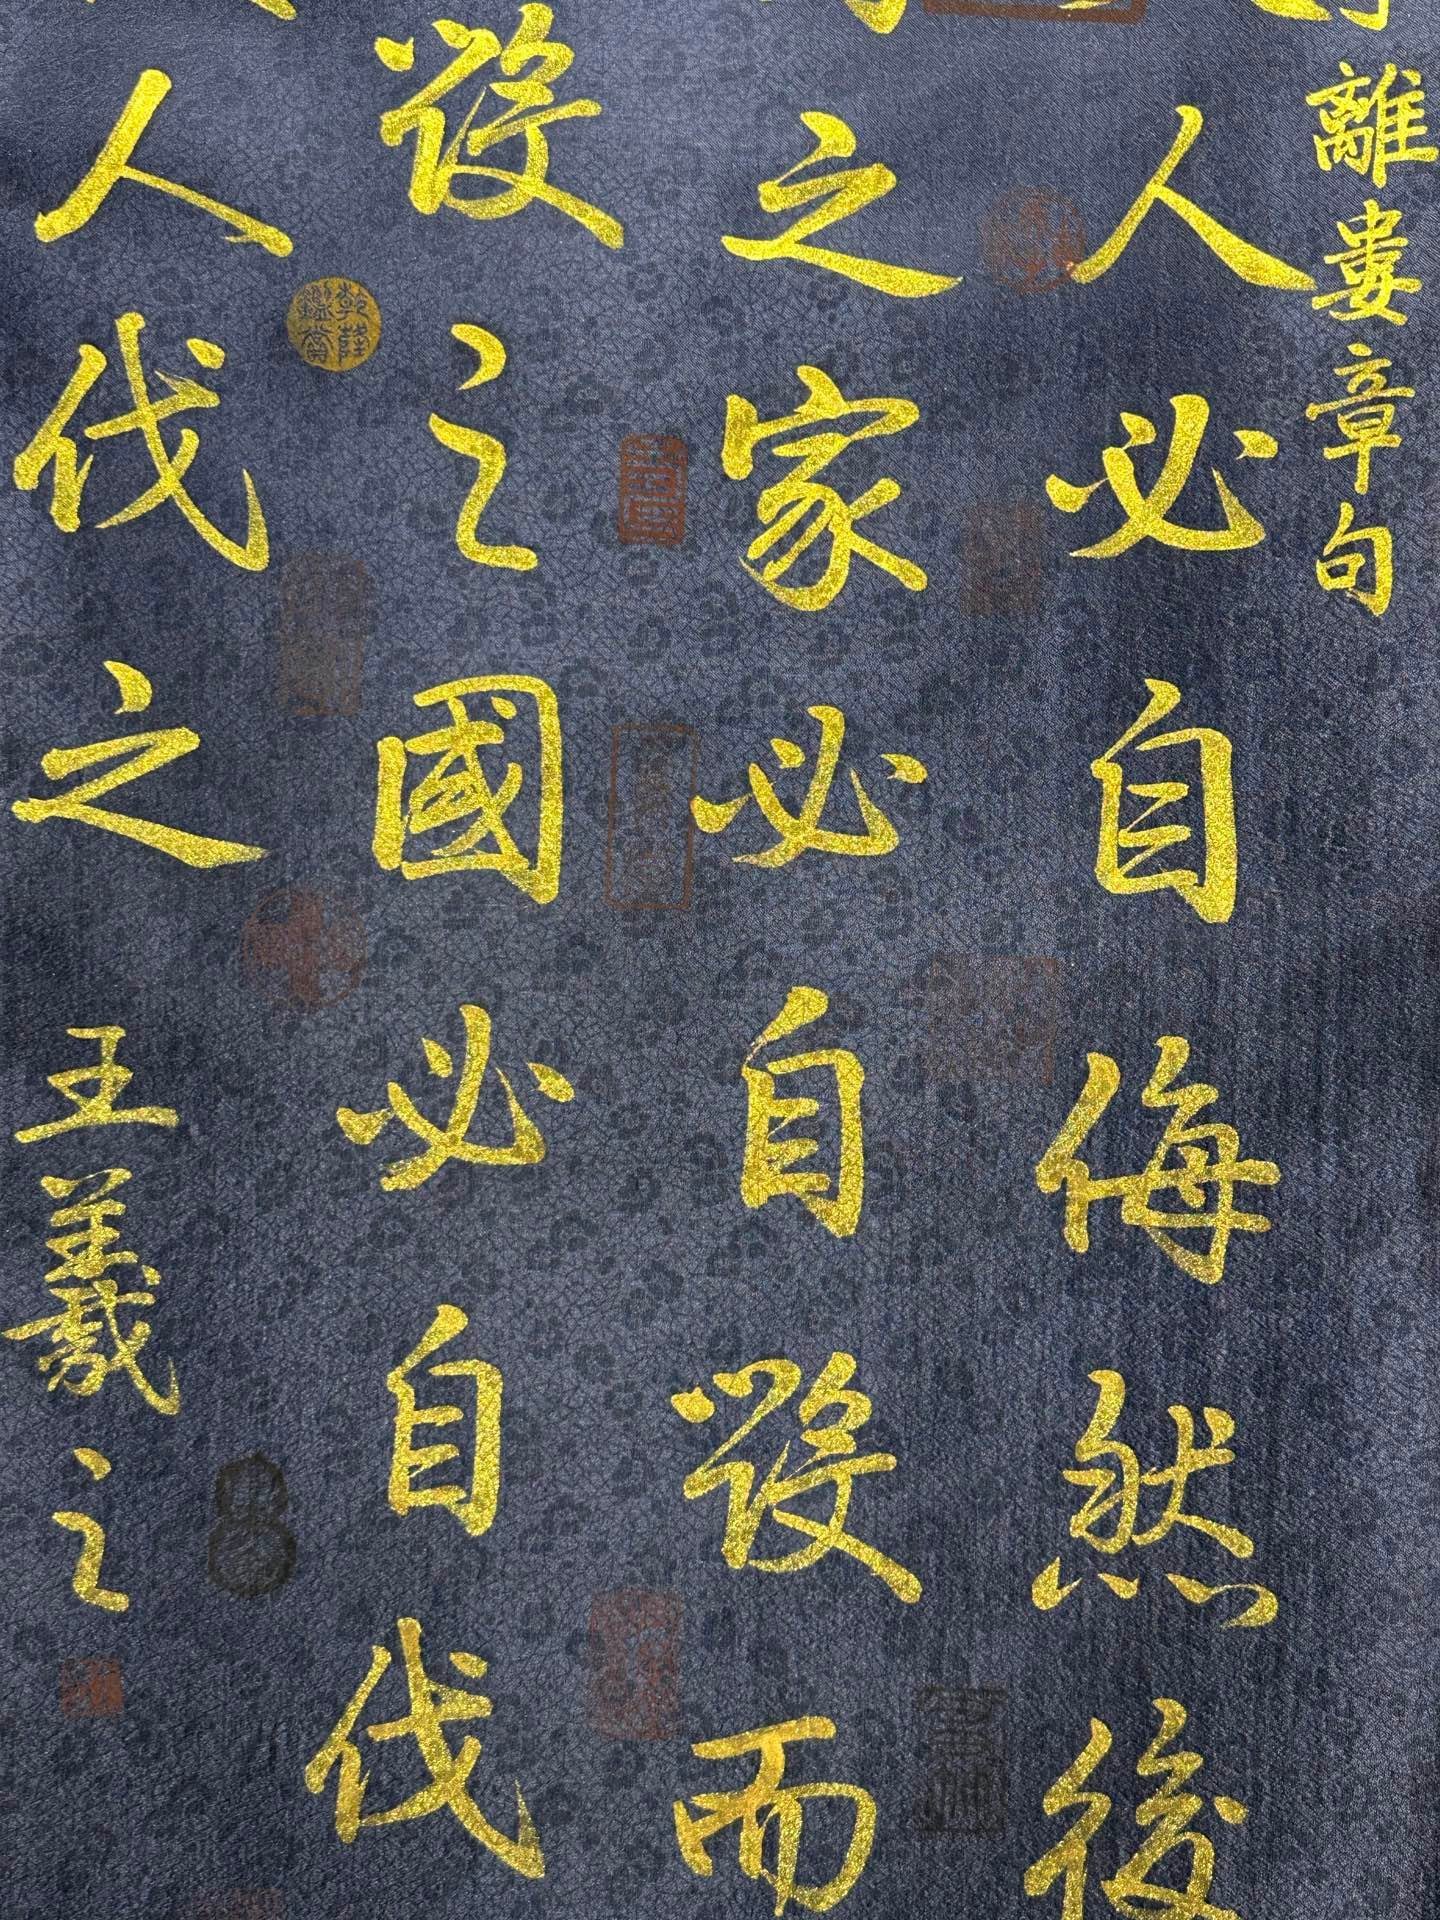 離婁章句
人必自侮然後
之家必自毀而
毀之國必自伐
人伐之
王羲之
乾隆鑑賞